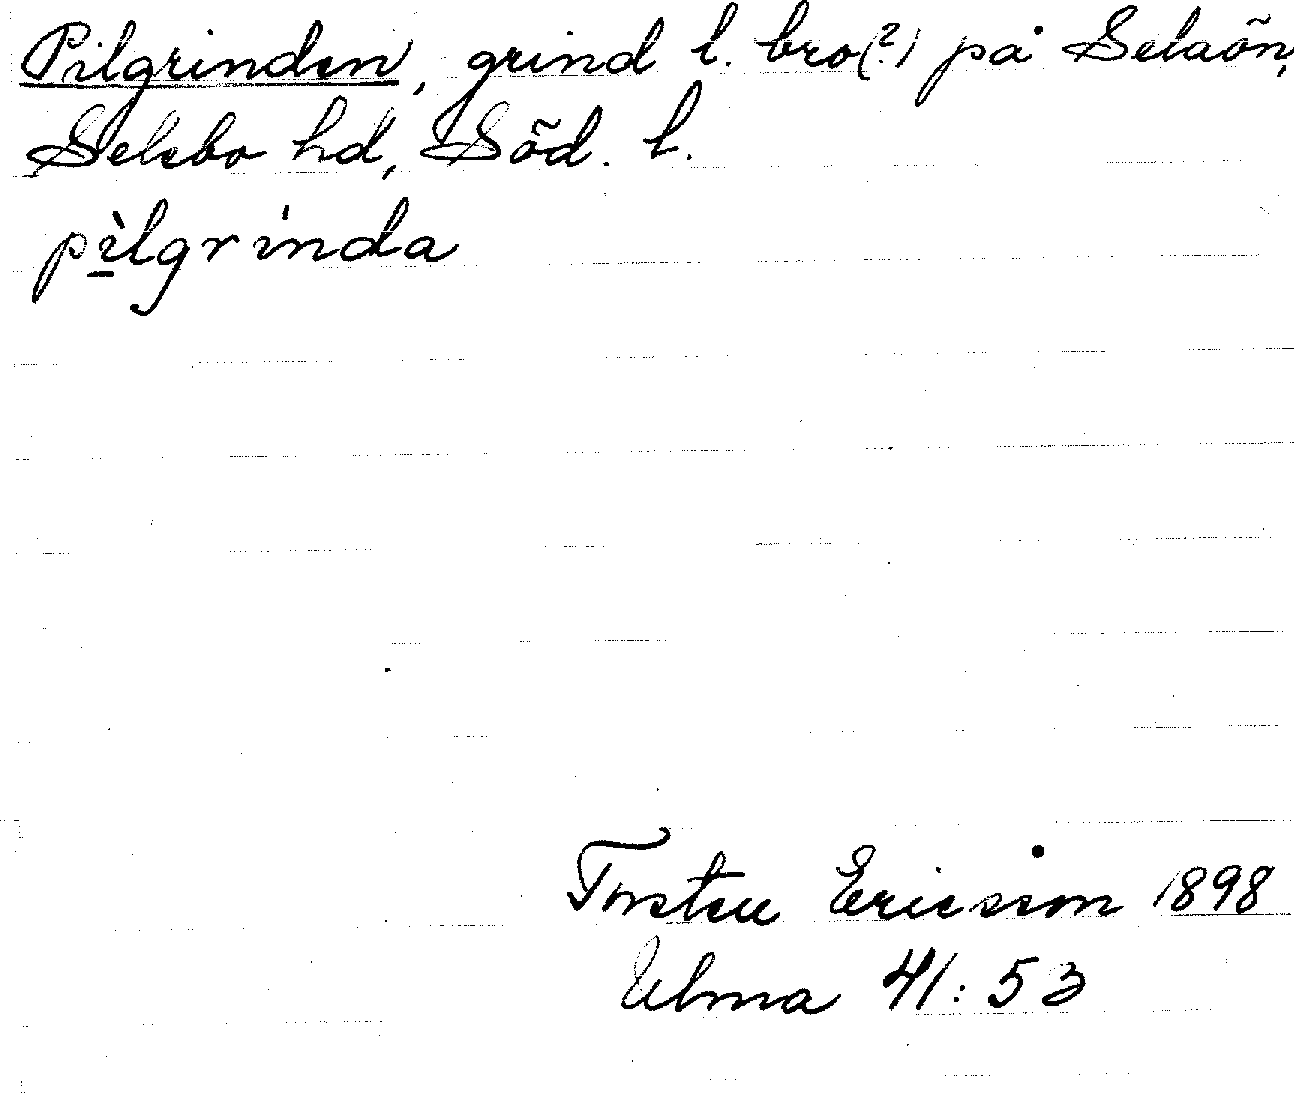 Pilgrinden, grind l. bro(?) på Selaön,
Selebo hd, Söd. l.
pìlgrìnda
Torsten Ericsson 1898
Ulma 41:53